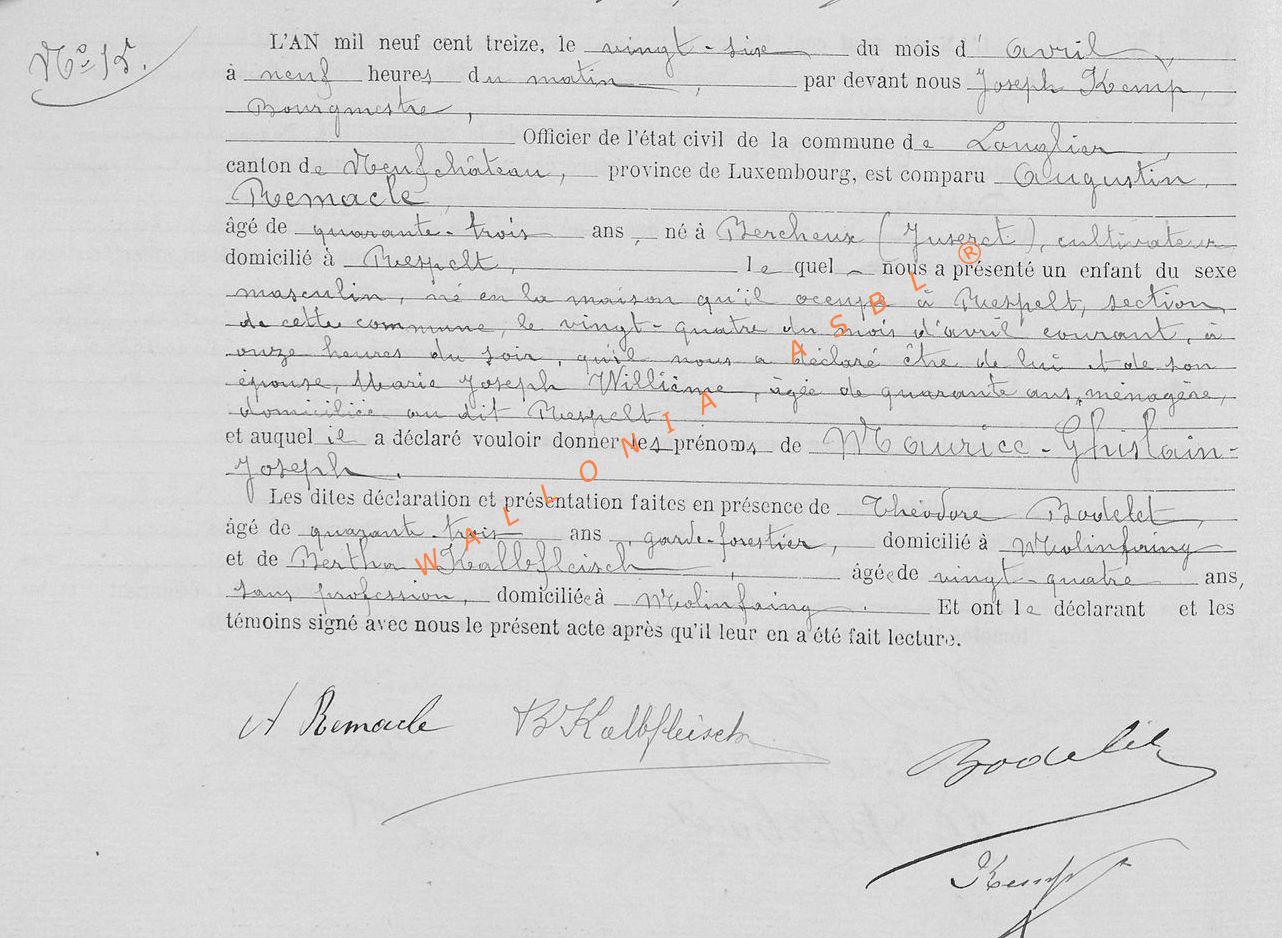 Nº 15.
L'AN mil neuf cent treize, le vingt-six du mois d'avril,
à neuf heures du matin, par devant nous Joseph Kemp,
Bourgmestre,
Officier de l'état civil de la commune de Longlier,
canton de Neufchâteau, province de Luxembourg, est comparu Augustin
Remacle,
âgé de quarante-trois ans, né à Bercheux (Juseret), cultivateur
domicilié à Respelt, lequel nous a présenté un enfant du sexe
masculin, né en la maison qu'il occupe à Respelt, section
de cette commune, le vingt-quatre du mois d'avril courant, à
onze heures du soir, qu'il nous a déclaré être de lui et de son
épouse, Marie Joseph Willième, âgée de quarante ans, ménagère,
domiciliée au dit Respelt
et auquel il a déclaré vouloir donner les prénoms de Maurice-Ghislain-
Joseph.
Les dites déclaration et présentation faites en présence de Théodore Bodelet,
âgé de quarant-trois ans, garde-forestier, domicilié à Molinfaing
et de Bertha Kalbfleisch, âgée de vingt-quatre ans,
sans profession, domiciliée à Molinfaing. Et ont le déclarant et les
témoins signé avec nous le présent acte après qu'il leur en a été fait lecture.
WALLONIA ASBL ®
A Remacle BKalbfleisch
Bodelet
Kemp